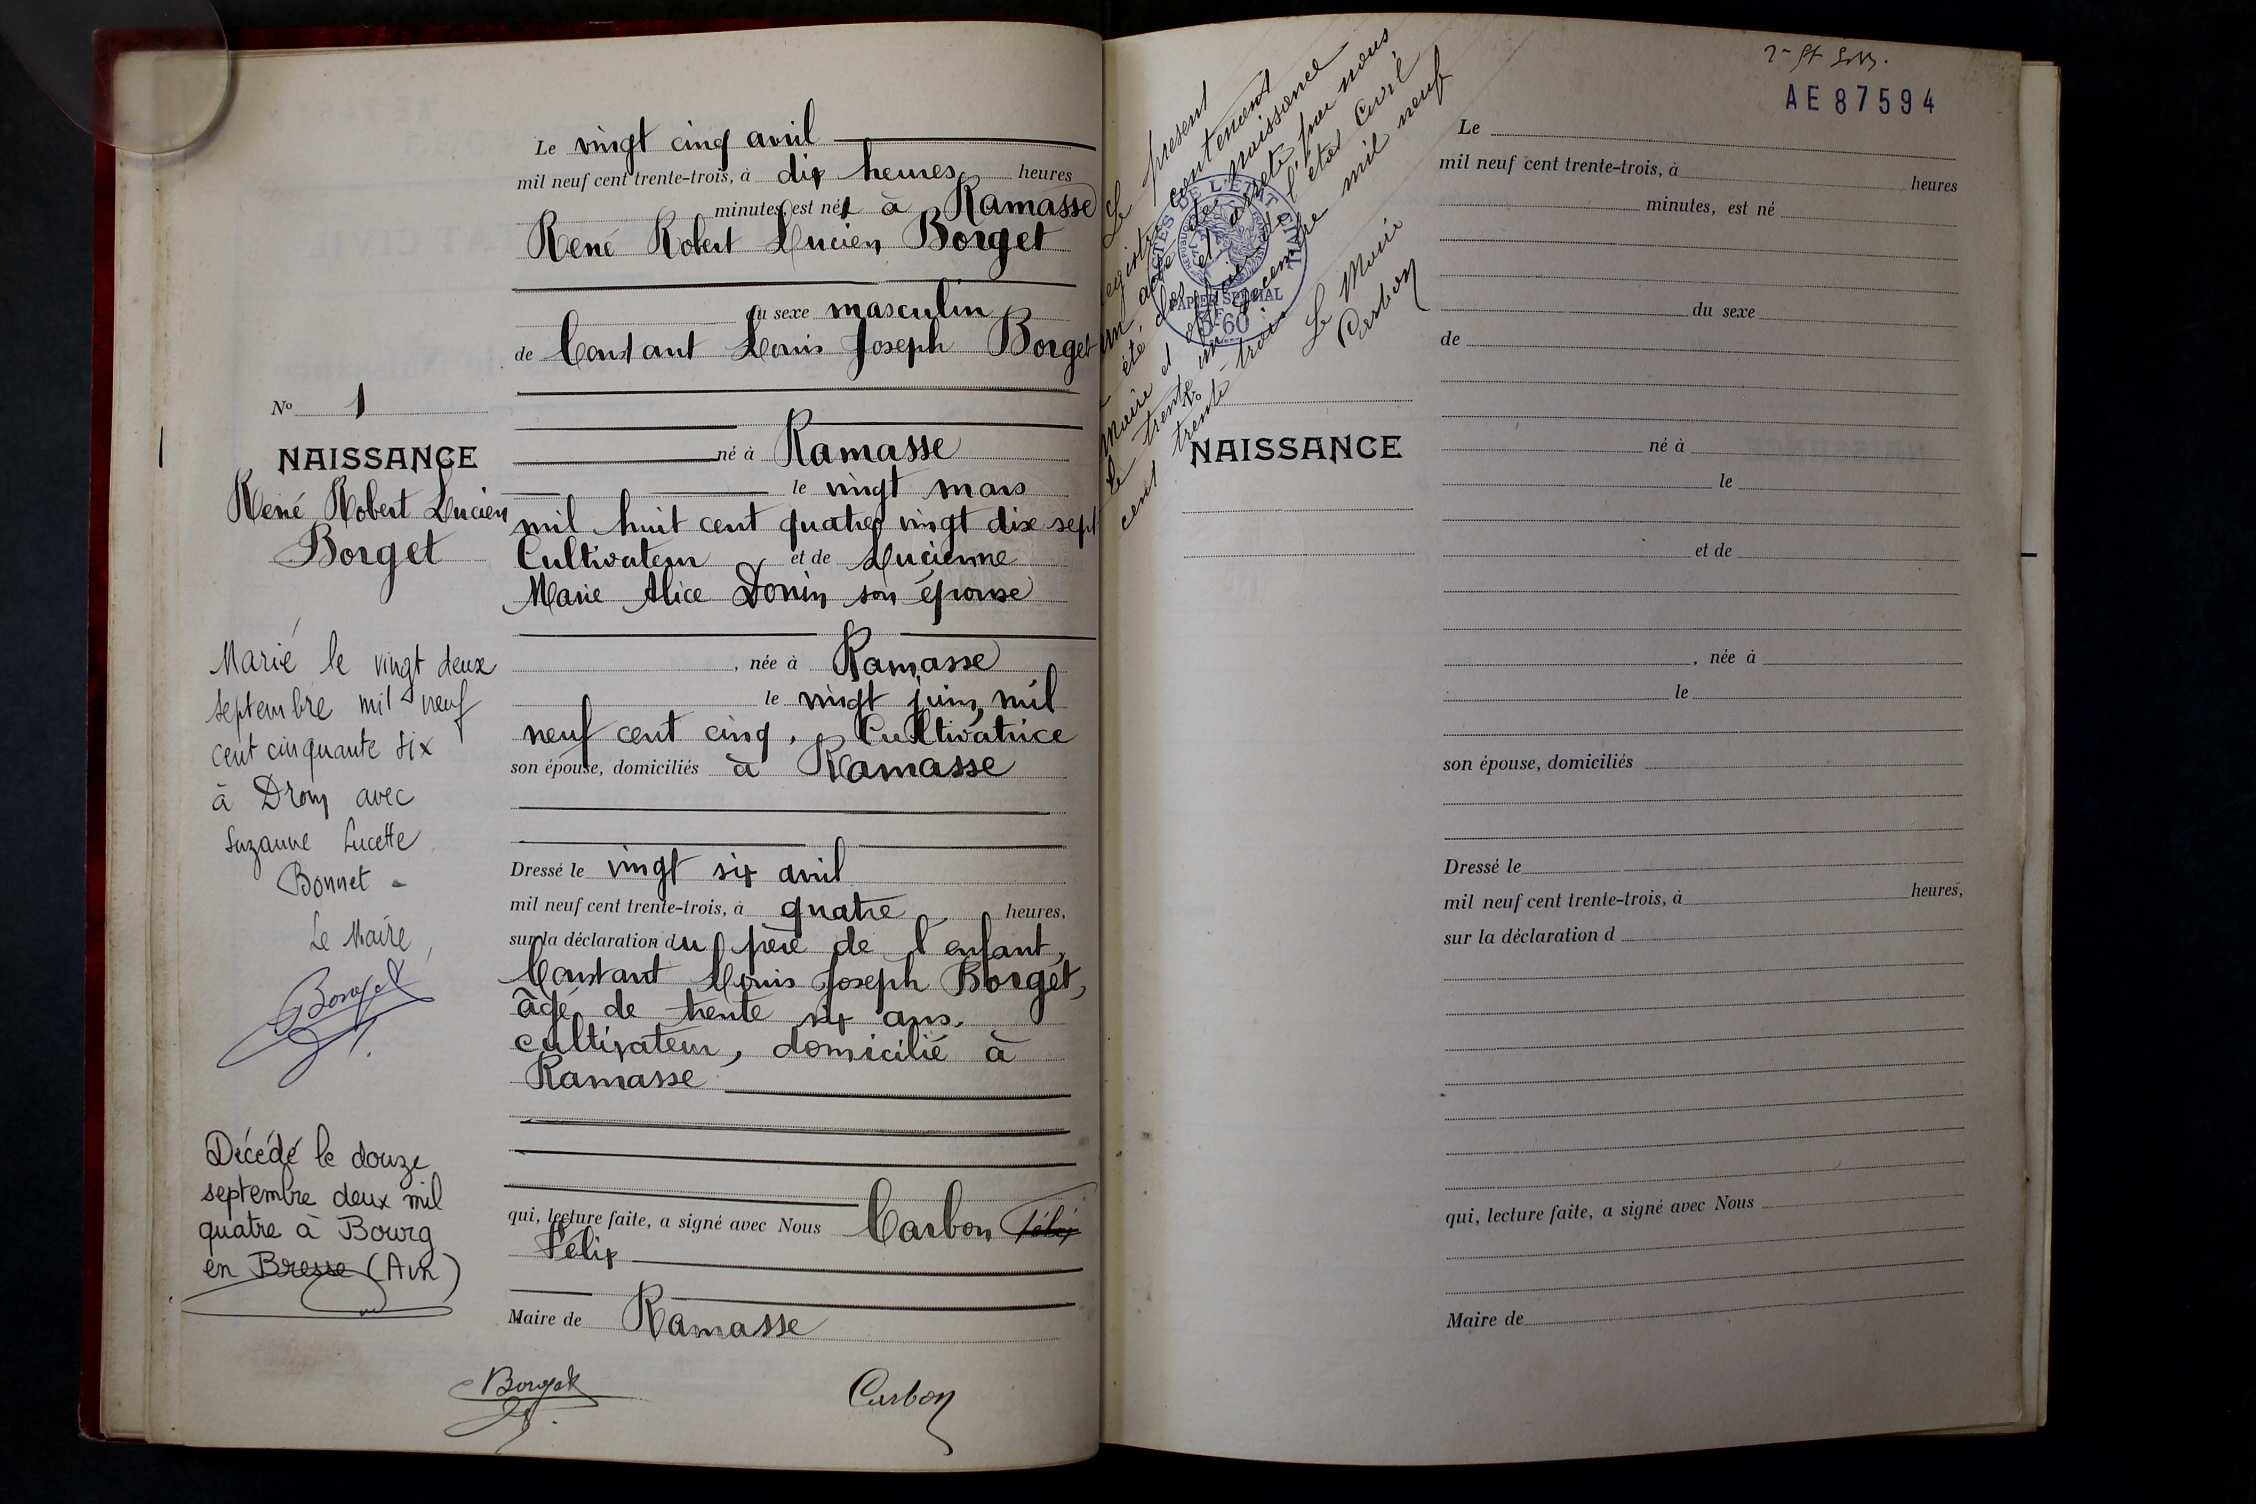 Le vingt cinq avril
mil neuf cent trente-trois, à dix heures heures
minutes, est né à Ramasse
René Robert Lucien Borget
du sexe masculin
de Constant Louis Joseph Borget
né à Ramasse
le vingt mars
mil huit cent quatre vingt dix sept
Cultivateur et de Lucienne
Marie Alice Donin son épouse
, née à Ramasse
le vingt juin mil
neuf cent cinq, Cultivatrice
son épouse, domiciliés à Ramasse
Dressé le vingt six avril
mil neuf cent trente-trois, à quatre heures,
sur la déclaration du père de l'enfant,
Constant Louis Joseph Borget,
âgé de trente six ans,
cultivateur, domicilié à
Ramasse
qui, lecture faite, a signé avec Nous Carbon Félix
Félix
Maire de Ramasse
Borget
Carbon
No 1
NAISSANCE
René Robert Lucien
Borget
Marié le vingt deux
septembre mil neuf
cent cinquante six
à Drom avec
Suzanne Lucette
Bonnet -
Le Maire,
Borget
Décédé le douze
septembre deux mil
quatre à Bourg
en Bresse (Ain)
Le présent
registre contenant
un acte de naissance
a été clos et arrêté par nous
Maire et officier de l'état civil
le trente un décembre mil neuf
cent trente trois
Le Maire
Carbon
ACTES DE L'ÉTAT CIVIL
PAPIER SPÉCIAL
60
AE 87594
No
NAISSANCE
Le
mil neuf cent trente-trois, à heures
minutes, est né
du sexe
de
né à
le
et de
, née à
le
son épouse, domiciliés
Dressé le
mil neuf cent trente-trois, à heures,
sur la déclaration d
qui, lecture faite, a signé avec Nous
Maire de